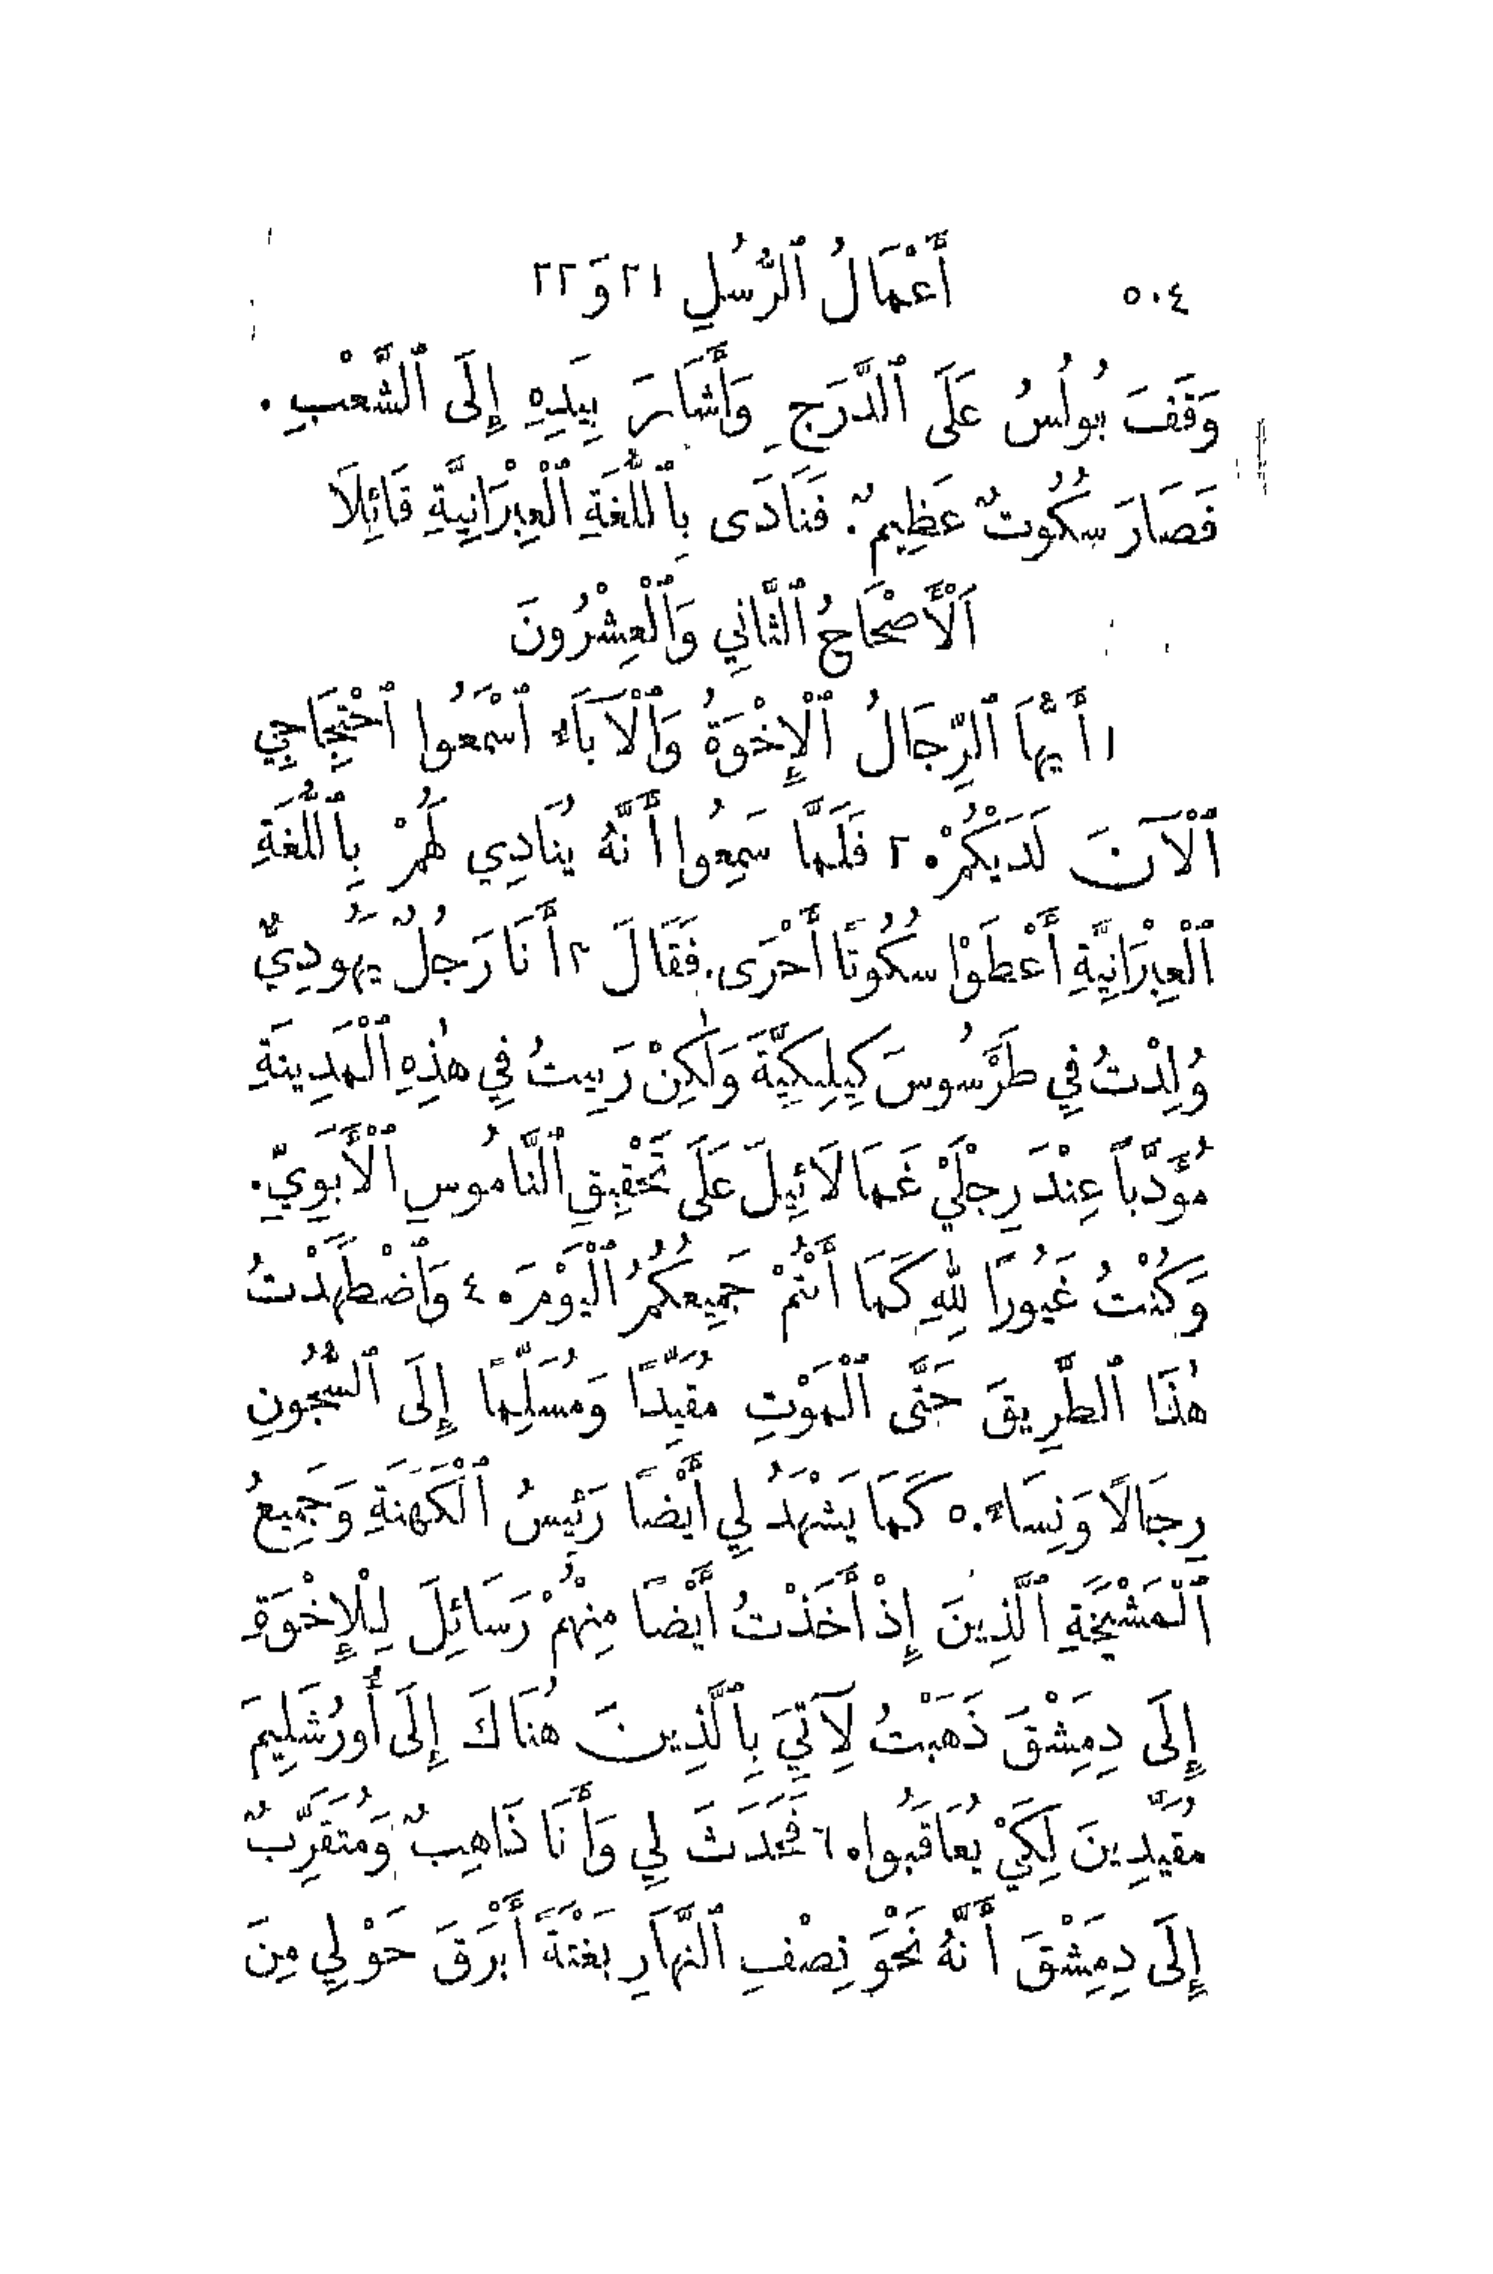 ٥٠٤ أَعْمَالُ ٱلرُّسُلِ ٢١ وَ ٢٢
وَقَفَ بُولُسُ عَلَى ٱلدَّرَجِ وَأَشَارَ بِيَدِهِ إِلَى ٱلشَّعْبِ.
فَصَارَ سُكُوتٌ عَظِيمٌ. فَنَادَى بِٱللُّغَةِ ٱلْعِبْرَانِيَّةِ قَائِلًا
اَلْأَصْحَاحُ ٱلثَّانِي وَٱلْعِشْرُونَ
١ أَيُّهَا ٱلرِّجَالُ ٱلْإِخْوَةُ وَٱلْآبَاءُ ٱسْمَعُوا ٱحْتِجَاجِي
ٱلْآنَ لَدَيْكُمْ. ٢ فَلَمَّا سَمِعُوا أَنَّهُ يُنَادِي لَهُمْ بِٱللُّغَةِ
ٱلْعِبْرَانِيَّةِ أَعْطَوْا سُكُوتًا أَحْرَى. فَقَالَ ٣ أَنَا رَجُلٌ يَهُودِيٌّ
وُلِدْتُ فِي طَرْسُوسَ كِيلِيكِيَّةَ وَلٰكِنْ رَبِيتُ فِي هٰذِهِ ٱلْمَدِينَةِ
مُؤَدَّبًا عِنْدَ رِجْلَيْ غَمَالَائِيلَ عَلَى تَحْقِيقِ ٱلنَّامُوسِ ٱلْأَبَوِيِّ.
وَكُنْتُ غَيُورًا لِلّٰهِ كَمَا أَنْتُمْ جَمِيعُكُمُ ٱلْيَوْمَ. ٤ وَٱضْطَهَدْتُ
هٰذَا ٱلطَّرِيقَ حَتَّى ٱلْمَوْتِ مُقَيِّدًا وَمُسَلِّمًا إِلَى ٱلسُّجُونِ
رِجَالًا وَنِسَاءً. ٥ كَمَا يَشْهَدُ لِي أَيْضًا رَئِيسُ ٱلْكَهَنَةِ وَجَمِيعُ
ٱلْمَشْيَخَةِ ٱلَّذِينَ إِذْ أَخَذْتُ أَيْضًا مِنْهُمْ رَسَائِلَ لِلْإِخْوَةِ
إِلَى دِمَشْقَ ذَهَبْتُ لِآتِيَ بِٱلَّذِينَ هُنَاكَ إِلَى أُورُشَلِيمَ
مُقَيَّدِينَ لِكَيْ يُعَاقَبُوا. ٦ فَحَدَثَ لِي وَأَنَا ذَاهِبٌ وَمُتَقَرِّبٌ
إِلَى دِمَشْقَ أَنَّهُ نَحْوَ نِصْفِ ٱلنَّهَارِ بَغْتَةً أَبْرَقَ حَوْلِي مِنَ